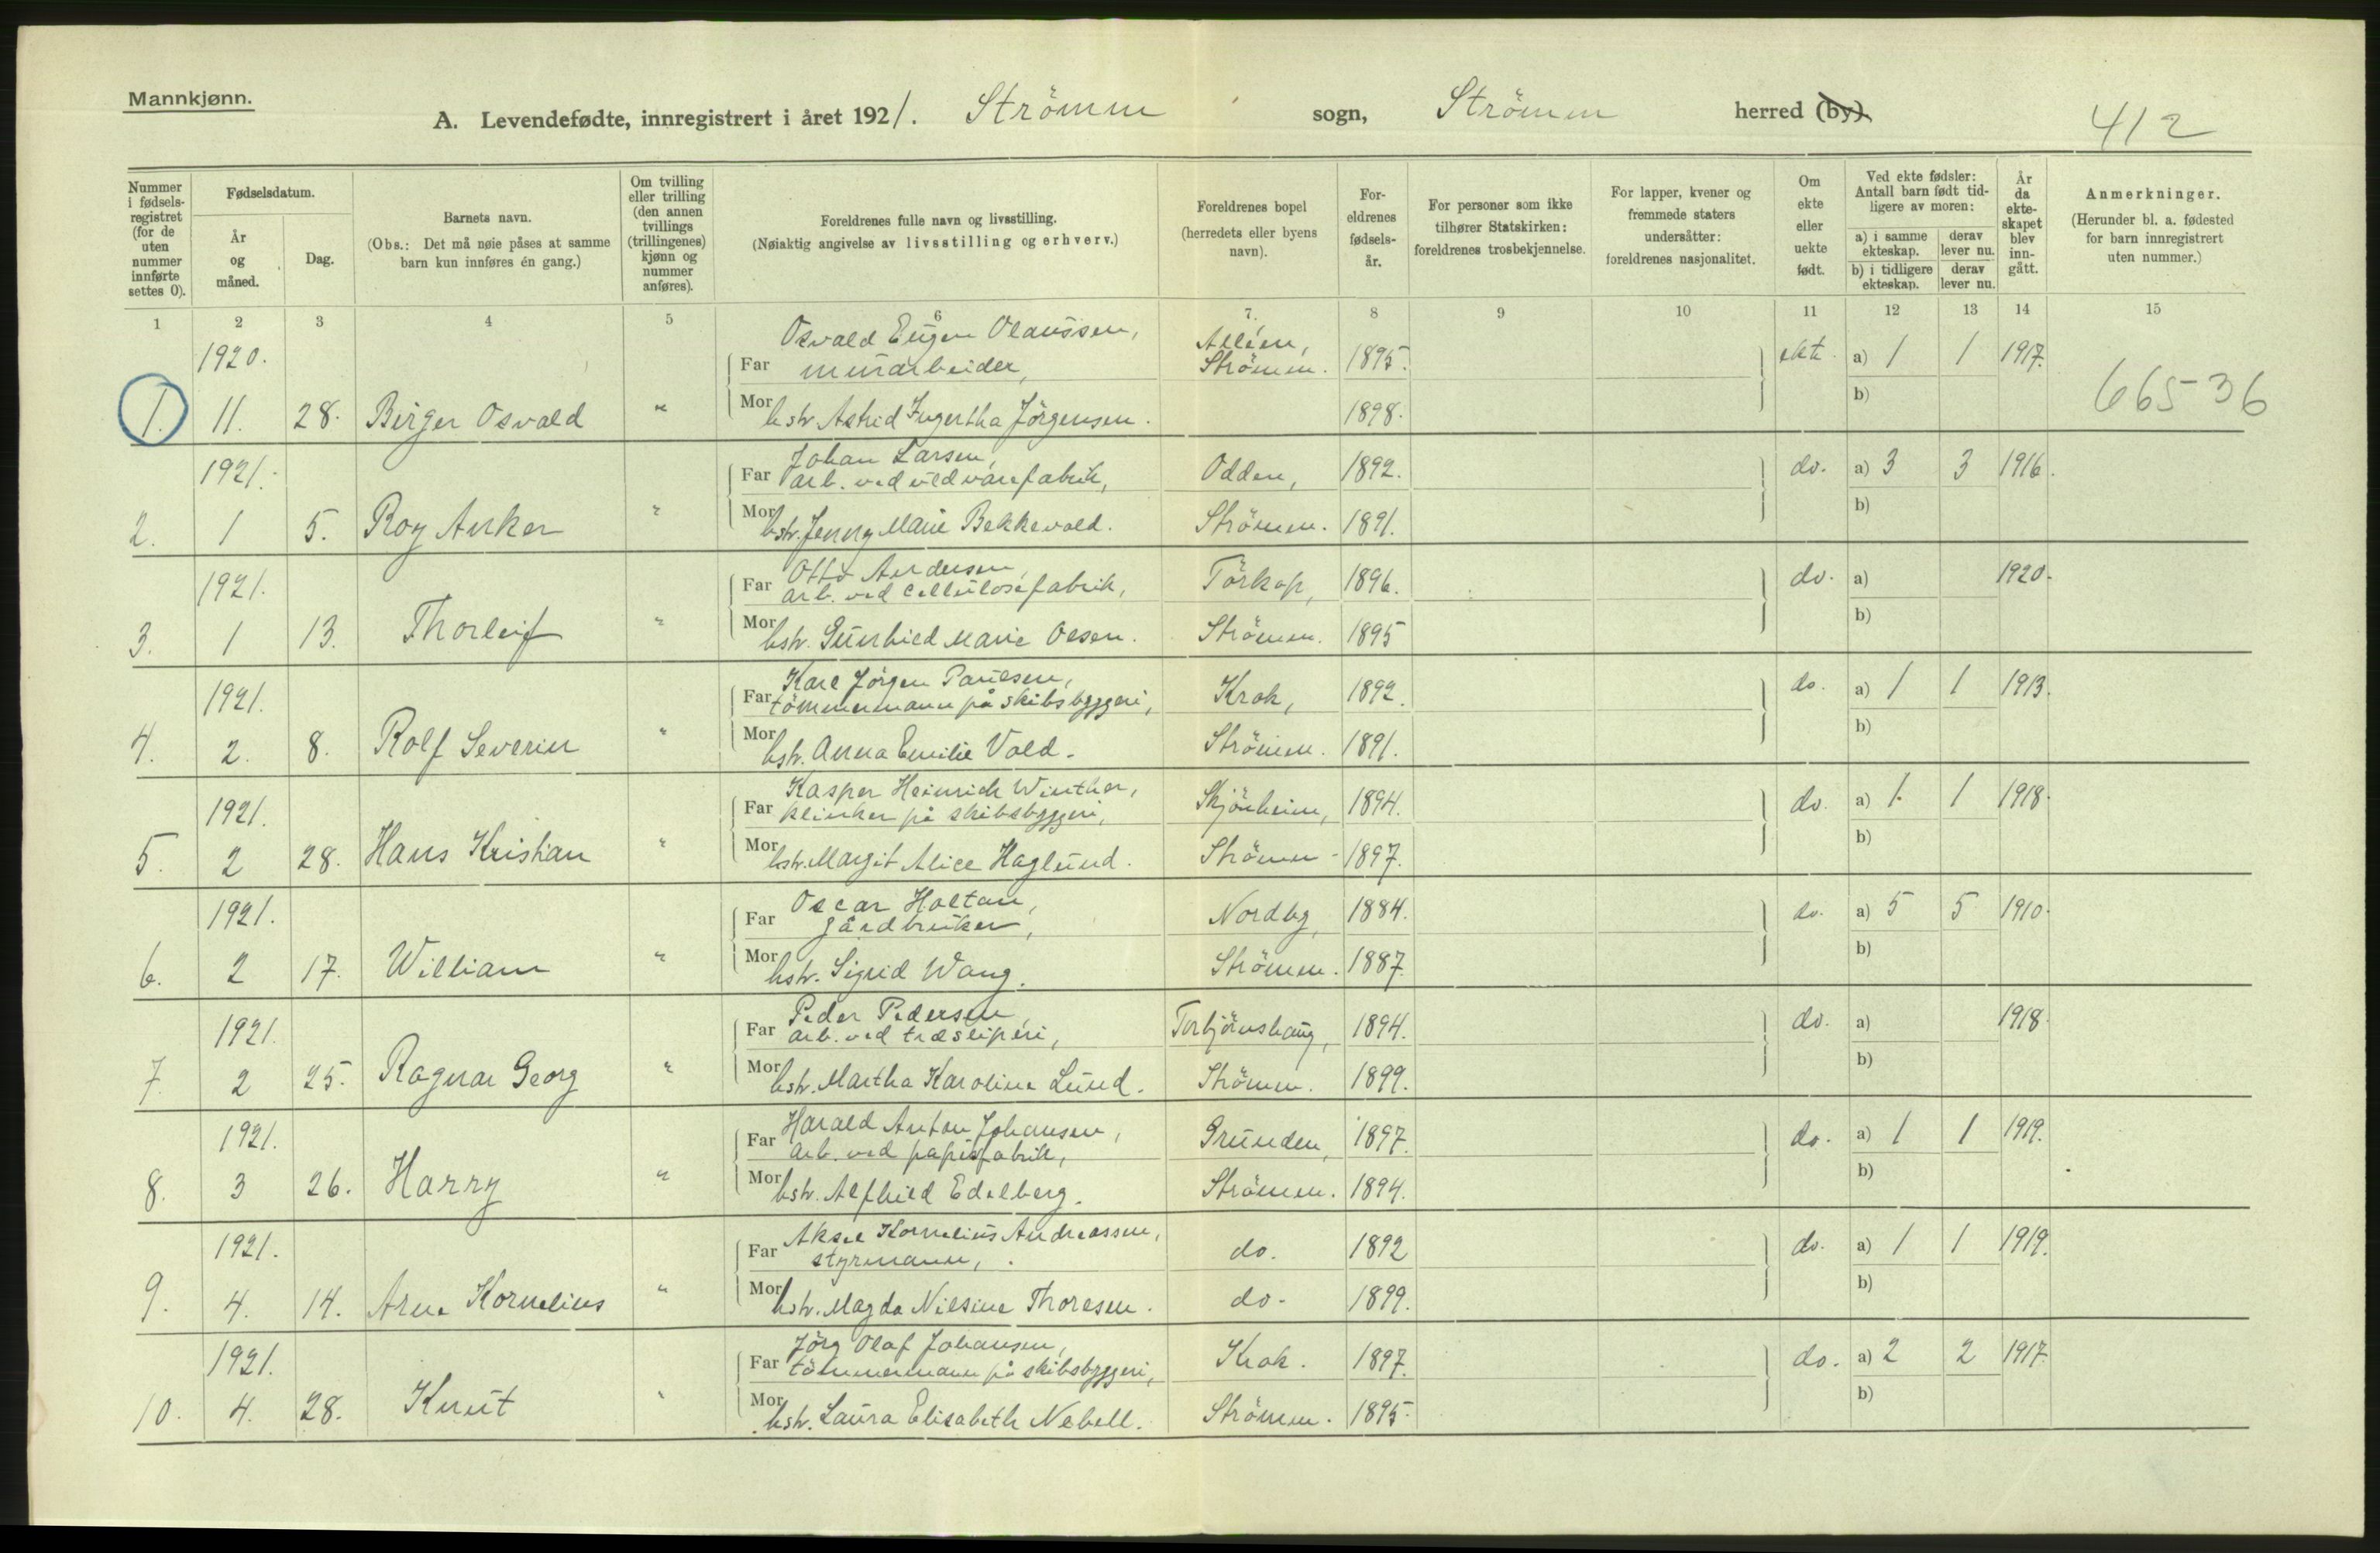 Mannkjønn.
A. Levendefødte, innregistrert i året 1921. Strömm sogn, Strömm herred (by).
412
Nummer i fødsels-registret (for de uten nummer innførte settes 0).
Fødselsdatum.
År og måned.
Dag.
Barnets navn.
(Obs.: Det må nøie påses at samme barn kun innføres én gang.)
Om tvilling eller trilling (den annen tvillings (trillingenes) kjønn og nummer anføres).
Foreldrenes fulle navn og livsstilling.
(Nøiaktig angivelse av livsstilling og erhverv.)
Foreldrenes bopel (herredets eller byens navn).
For-eldrenes fødsels-år.
For personer som ikke tilhører Statskirken: foreldrenes trosbekjennelse.
For lapper, kvener og fremmede staters undersåtter: foreldrenes nasjonalitet.
Om ekte eller uekte født.
Ved ekte fødsler: Antall barn født tid-ligere av moren:
a) i samme ekteskap. derav lever nu.
b) i tidligere ekteskap. derav lever nu.
År da ekte-skapet blev inn-gått.
Anmerkninger.
(Herunder bl. a. fødested for barn innregistrert uten nummer.)
1 2 3 4 5 6 7 8 9 10 11 12 13 14 15
1920. Osvald Eugen Olaussen, Alléen,
Far murarbeider, Strömm. 1895. ekte. a) 1 1 1917.
1. 11. 28. Birger Osvald " Mor hstr. Astrid Ingertha Jörgensen. 1898. b)
66536
1921. Johan Larsen,
Far arb. ved uldvarefabrik, Odden, 1892. do. a) 3 3 1916.
2. 1 5. Roy Anker " Mor hstr. Jenny Marie Bekkevold. Strömm. 1891. b)
1921. Otto Andersen,
Far arb. ved cellulosefabrik, Törkop, 1896. do. a) 1920.
3. 1 13. Thorleif " Mor hstr. Gunhild Marie Olsen. Strömm. 1895 b)
1921. Karl Jörgen Paulsen,
Far tömmermann på skibsbyggeri, Krok, 1892. do. a) 1 1 1913.
4. 2. 8. Rolf Severin " Mor hstr. Anna Emilie Vold. Strömm. 1891. b)
1921. Kasper Heinrich Winther,
Far klinker på skibsbyggeri, Skjönheim, 1894. do. a) 1. 1 1918.
5. 2 28. Hans Kristian " Mor hstr. Margit Alice Haglund. Strömm - 1897. b)
1921. Oscar Holtan,
Far gårdbruker, Nordby, 1884. do. a) 5 5 1910.
6. 2 17. William " Mor hstr. Sigrid Wang. Strömm. 1887. b)
1921. Peder Pedersen,
Far arb. ved træsliperi, Torbjörnshaug, 1894. do. a) 1918.
7. 2 25. Ragnar Georg " Mor hstr. Martha Karoline Lund. Strömm. 1899. b)
1921. Harald Anton Johansen,
Far arb. ved papirfabrik, Grunden, 1897. do. a) 1 1 1919.
8. 3 26. Harry " Mor hstr. Alfhild Edelberg. Strömm. 1894. b)
1921. Aksel Kornelius Andreassen,
Far styrmann, do. 1892 do. a) 1 1 1919.
9. 4. 14. Arne Kornelius " Mor hstr. Magda Nilsine Thoresen. do. 1899. b)
1921. Jörg Olaf Johansen,
Far tömmermann på skibsbyggeri, Krok. 1897. do. a) 2 2 1917
10. 4. 28. Knut " Mor hstr. Laura Elisabeth Nebell. Strömm. 1895. b)